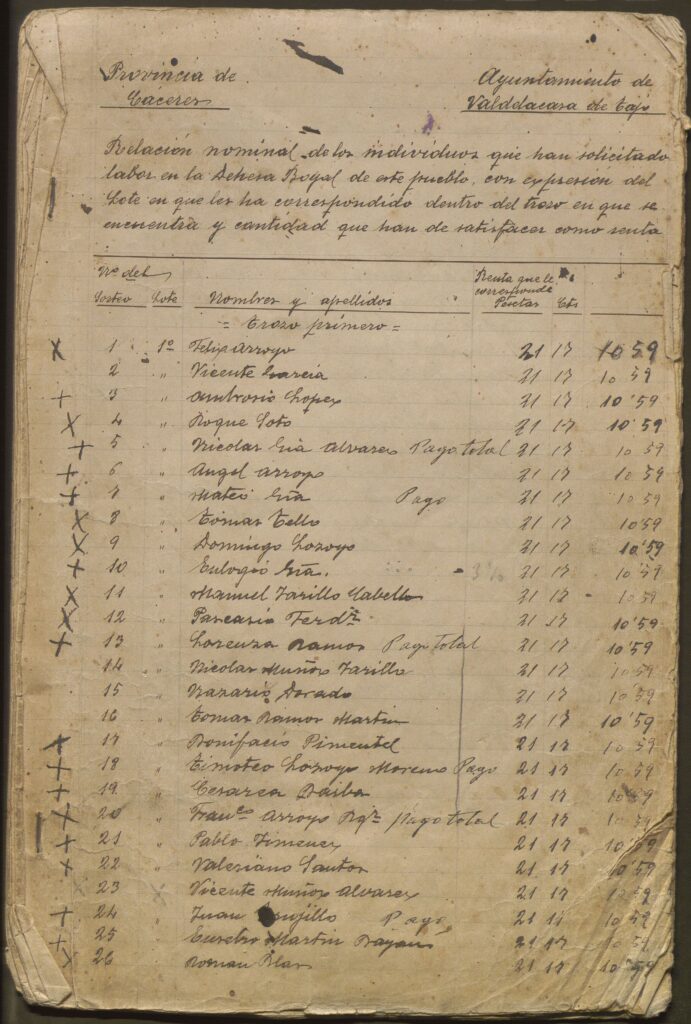 Provincia de
Cáceres
Ayuntamiento de
Valdelacasa de Tajo
Relación nominal de los individuos que han solicitado
labor en la Dehesa Boyal de este pueblo, con expresión del
Lote en que les ha correspondido dentro del trozo en que se
encuentra y cantidad que han de satisfacer como renta
Nº del Sorteo Lote Nombres y apellidos Renta que le corresponde Pesetas Cts
= Trozo primero =
x 1 1º Felix Arroyo 21 17 10'59
2 " Vicente Garcia 21 17 10'59
+ 3 " Ambrosio Lopez 21 17 10'59
x 4 " Roque Soto 21 17 10'59
+ 5 " Nicolas Gia Alvarez Pago total 21 17 10'59
+ 6 " Angel Arroyo 21 17 10'59
+ 7 " Mateo Gia Pago 21 17 10'59
x 8 " Tomas Tello 21 17 10'59
x 9 " Domingo Lozoyo 21 17 10'59
+ 10 " Eulogio Gia. 21 17 10'59
x 11 " Manuel Jarillo Cabello 21 17 10'59
x 12 " Pascasio Ferdz 21 17 10'59
+ 13 " Lorenza Ramos Pago total 21 17 10'59
14 " Nicolas Muñoz Jarillo 21 17 10'59
15 " Nazario Dorado 21 17 10'59
16 " Tomas Ramos Martin 21 17 10'59
+ 17 " Bonifacio Pimentel 21 17 10'59
+ 18 " Timoteo Lozoyo Moreno Pago 21 17 10'59
+ 19 " Cesarea 21 17 10'59
+ 20 " Franco Arroyo Rgz pago total 21 17 10'59
+ 21 " Pablo Jimenez 21 17 10'59
x 22 " Valeriano Santos 21 17 10'59
23 x " Vicente Muñoz Alvarez 21 17 10'59
+ 24 " Juan Pago 21 17 10'59
+ 25 " Martin 21 17 10'59
x 26 Román Blas 21 17 10'59